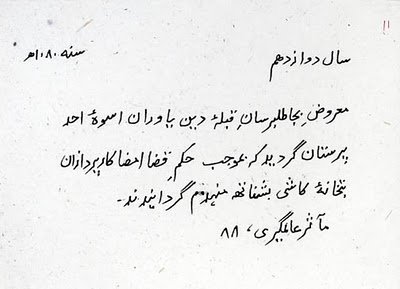 ۱۱
سال دوازدهم سنه ۱۰۸۰ھ
معروض بجا طلبرسان قبلۂ دین یاوران اسوۂ احد
پرستان گردید کہ بموجب حکم قضا امضا کارپردازان
بتخانۂ کاشی بشناتھ منہدم گردانیدند۔
مآثر عالمگیری، ۸۸